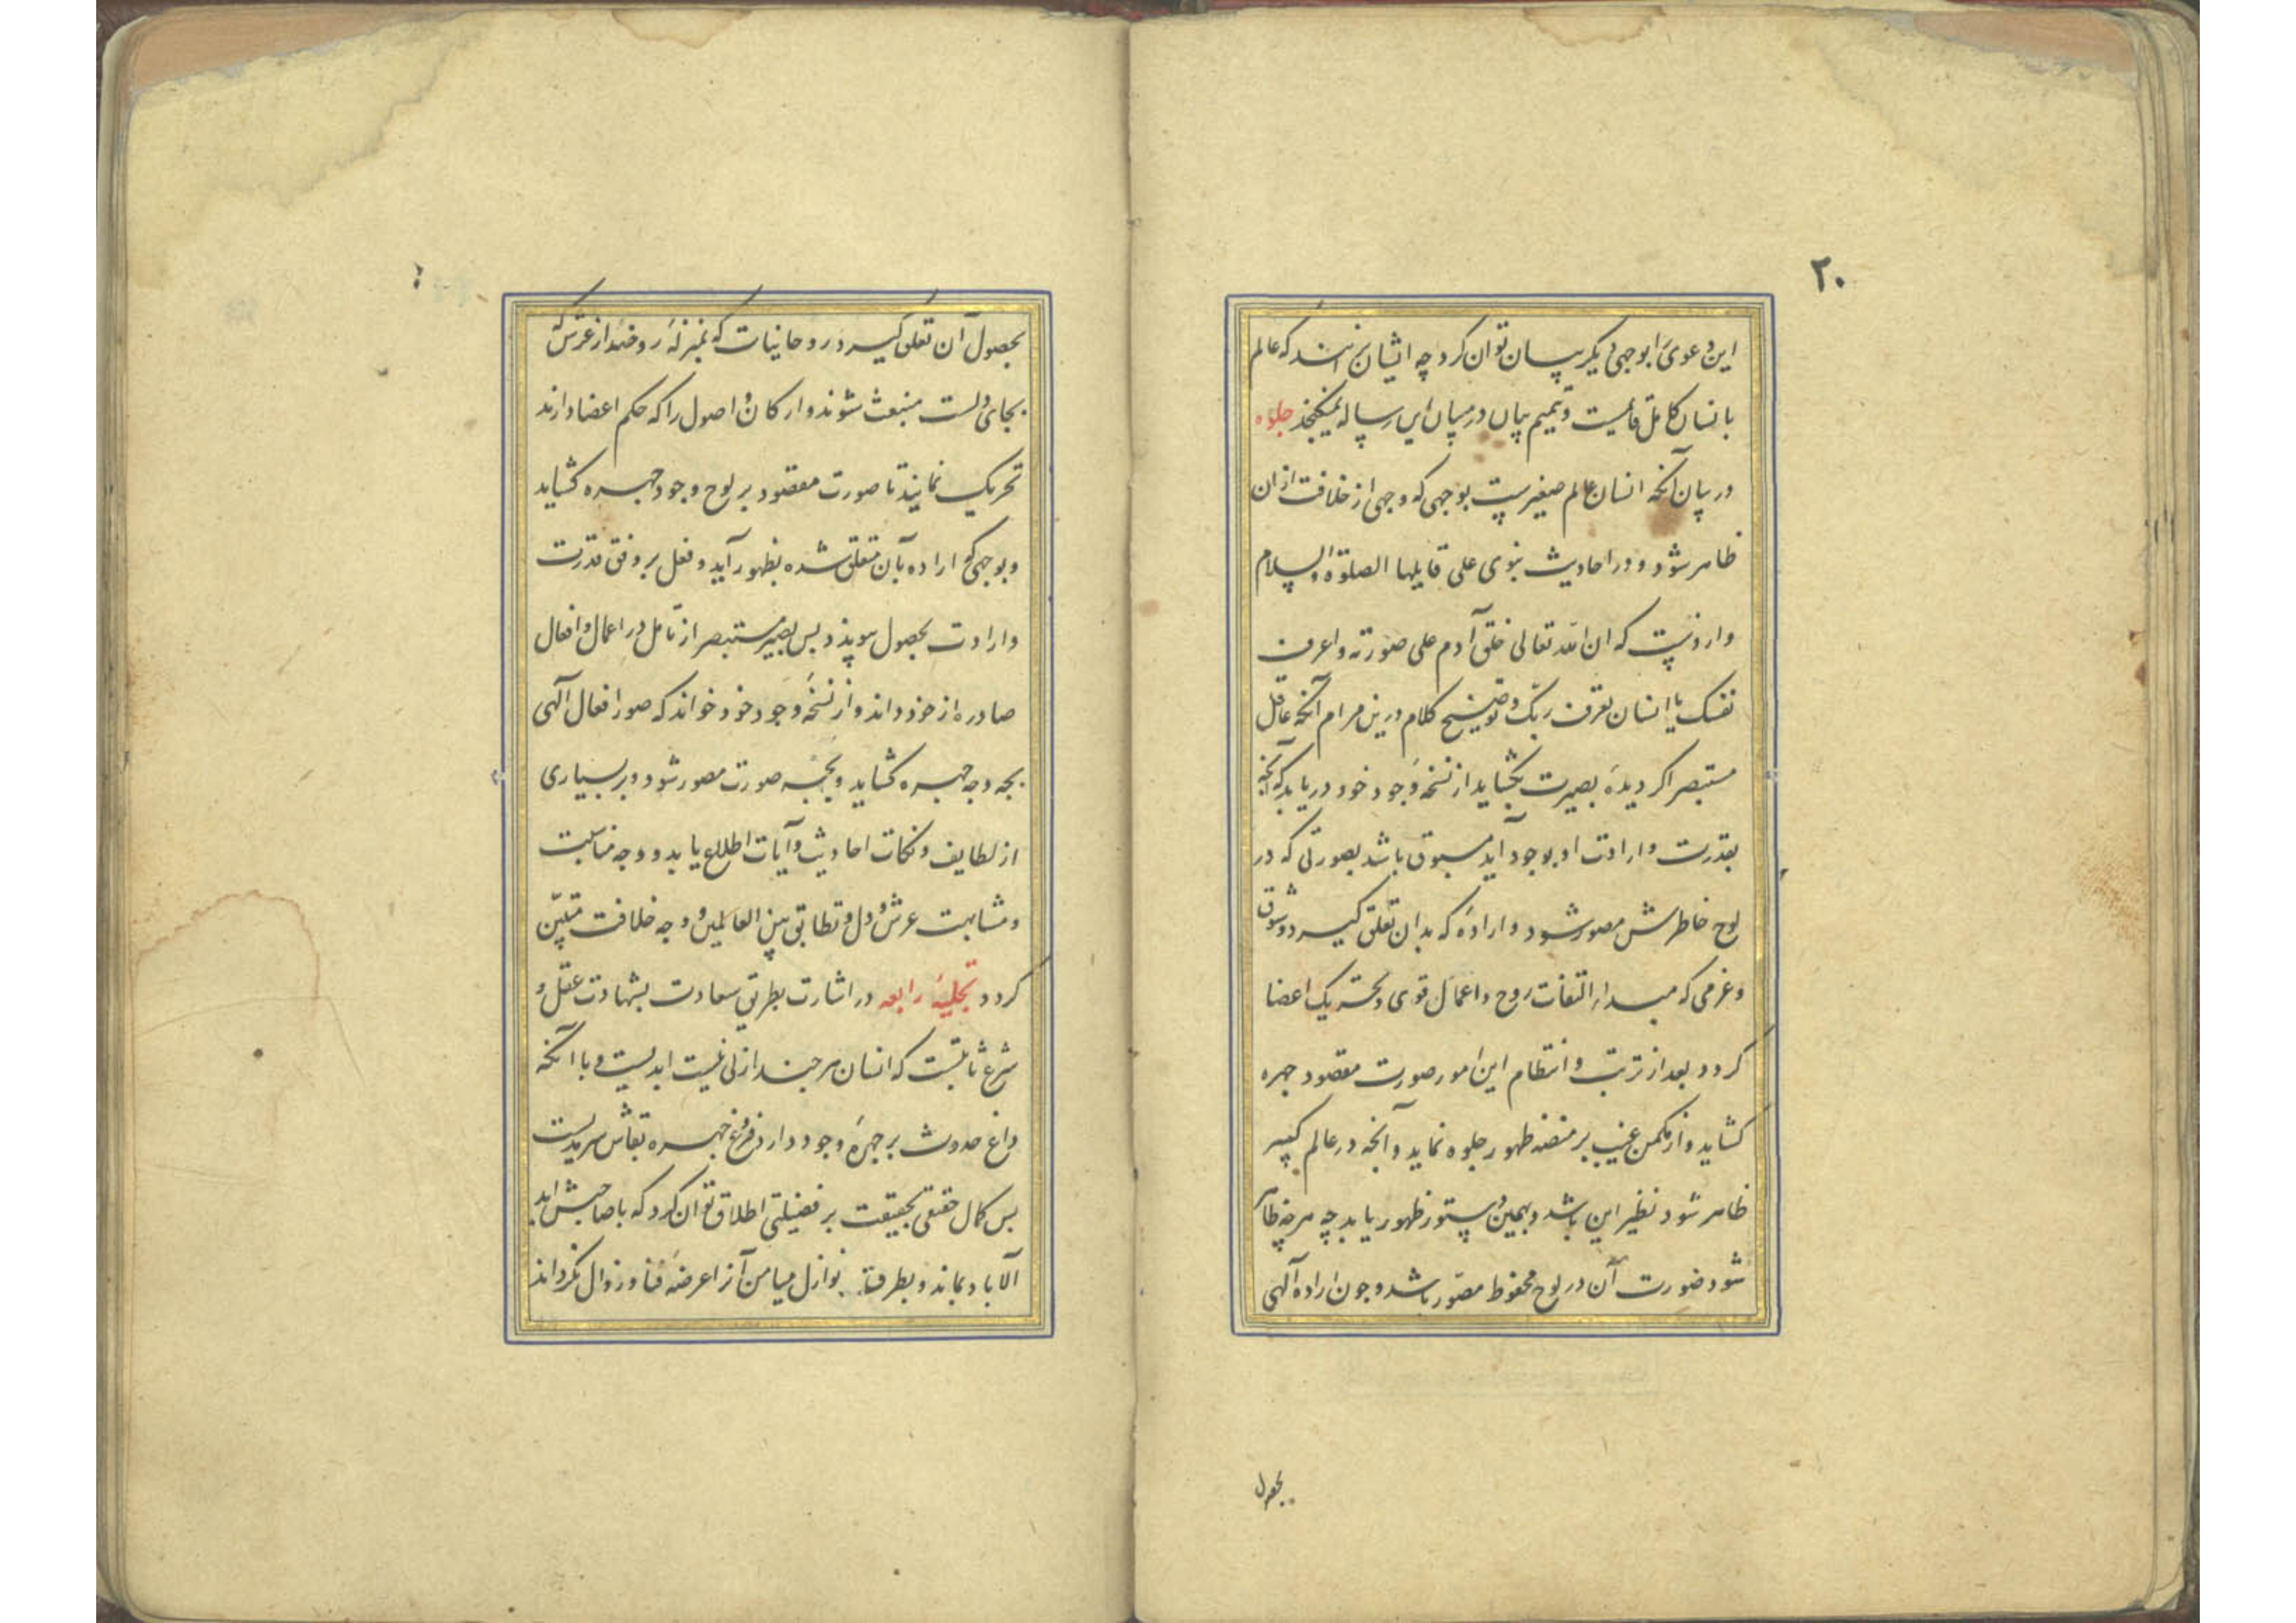 ۲۰
این دعوی را بوجهی دیگر بیان توان کرد چه ایشان برانند که عالم
بانسان کامل قایمست و تتمیم بیان در میان این رساله نمیکنجد جلوه
در بیان آنکه انسان عالم صغیرست بوجهی که وجهی از خلافت ازان
ظاهر شود و در احادیث نبوی علی قایلها الصلوة والسلام
واردست که ان الله تعالی خلق آدم علی صورته و اعرف
نفسک یا انسان تعرف ربک و توضیح کلام درین مرام آنکه عاقل
مستبصر اکر دیدهٔ بصیرت بکشاید از نسخهٔ وجود خود دریابد که آنچه
بقدرت و ارادت او بوجود آید مسبوق باشد بصورتی که در
لوح خاطرش مصور شود و ارادهٔ که بدان تعلق کیرد و شوق
و عزمی که مبدا التفات روح و اعمال قوی و تحریک اعضا
کردد بعد از ترتب و انتظام این امور صورت مقصود چهره
کشاید و از مکمن غیب بر منصه ظهور جلوه نماید و آنچه در عالم کبیر
ظاهر شود نظیر این باشد و بهمین دستور ظهور یابد چه هرچه ظاهر
شود صورت آن در لوح محفوظ مصور باشد و چون اراده آلهی
بحصول
بحصول آن تعلق کیرد روحانیات که بمنزلهٔ روحند از عرش که
بجای دلست منبعث شوند و ارکان و اصول را که حکم اعضا دارند
تحریک نمایند تا صورت مقصود بر لوح وجود چهره کشاید
و بوجهی که اراده بآن متعلق شده بظهور آید و فعل بر وفق قدرت
و ارادت بحصول پیوندد پس بصیر مستبصر از تامل در اعمال و افعال
صادره از خود داند و از نسخهٔ وجود خود خواند که صور افعال آلهی
بچه وجه چهره کشاید و بچه صورت مصور شود و بر بسیاری
از لطایف و نکات احادیث و آیات اطلاع یابد و وجه مناسبت
و مشابهت عرش و دل و تطابق بین العالمین و وجه خلافت متبین
کردد تجلیهٔ رابعه در اشارت بطریق سعادت بشهادت عقل و
شرع ثابتست که انسان هرچند ازلی نیست ابدیست و با آنکه
داغ حدوث بر چهرهٔ وجود دارد فروغ چهره بقاش سرمدیست
پس کمال حقیقی بحقیقت بر فضیلتی اطلاق توان کرد که با صاحبش ابد
الآباد بماند و بطرفتاز نوازل میامن آنرا عرضهٔ فنا و زوال نکرداند